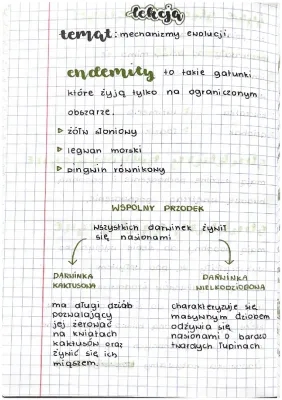 lekcja
temat: mechanizmy ewolucji.
endemity to takie gatunki
które żyją tylko na ograniczonym
obszarze.
▷ żółw słoniowy
▷ legwan morski
▷ pingwin równikowy
WSPÓLNY PRZODEK
wszystkich darwinek żywił
się nasionami
DARWINKA
KAKTUSOWA
DARWINKA
WIELKODZIOBOWA
ma długi dziób
pozwalający
jej żerować
na kwiatach
kaktusów oraz
żywić się ich
miąższem.
charakteryzuje się
masywnym dziobem
odżywia się
nasionami o bardzo
twardych łupinach